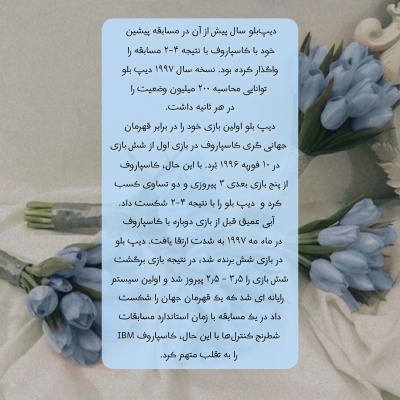 دیپ‌بلو سال پیش از آن در مسابقه پیشین
خود با کاسپاروف با نتیجه ۴-۲ مسابقه را
واگذار کرده بود. نسخه سال ۱۹۹۷ دیپ بلو
توانایی محاسبه ۲۰۰ میلیون وضعیت را
در هر ثانیه داشت.
دیپ بلو اولین بازی خود را در برابر قهرمان
جهانی گری کاسپاروف در بازی اول از شش بازی
در ۱۰ فوریه ۱۹۹۶ بُرد. با این حال، کاسپاروف
از پنج بازی بعدی ۳ پیروزی و دو تساوی کسب
کرد و دیپ بلو را با نتیجه ۴-۲ شکست داد.
آبی عمیق قبل از بازی دوباره با کاسپاروف
در ماه مه ۱۹۹۷ به شدت ارتقا یافت. دیپ بلو
در بازی شش برنده شد، در نتیجه بازی برگشت
شش بازی را ۳٫۵ – ۲٫۵ پیروز شد و اولین سیستم
رایانه ای شد که یک قهرمان جهان را شکست
داد در یک مسابقه با زمان استاندارد مسابقات
شطرنج کنترل‌ها با این حال، کاسپاروف IBM
را به تقلب متهم کرد.